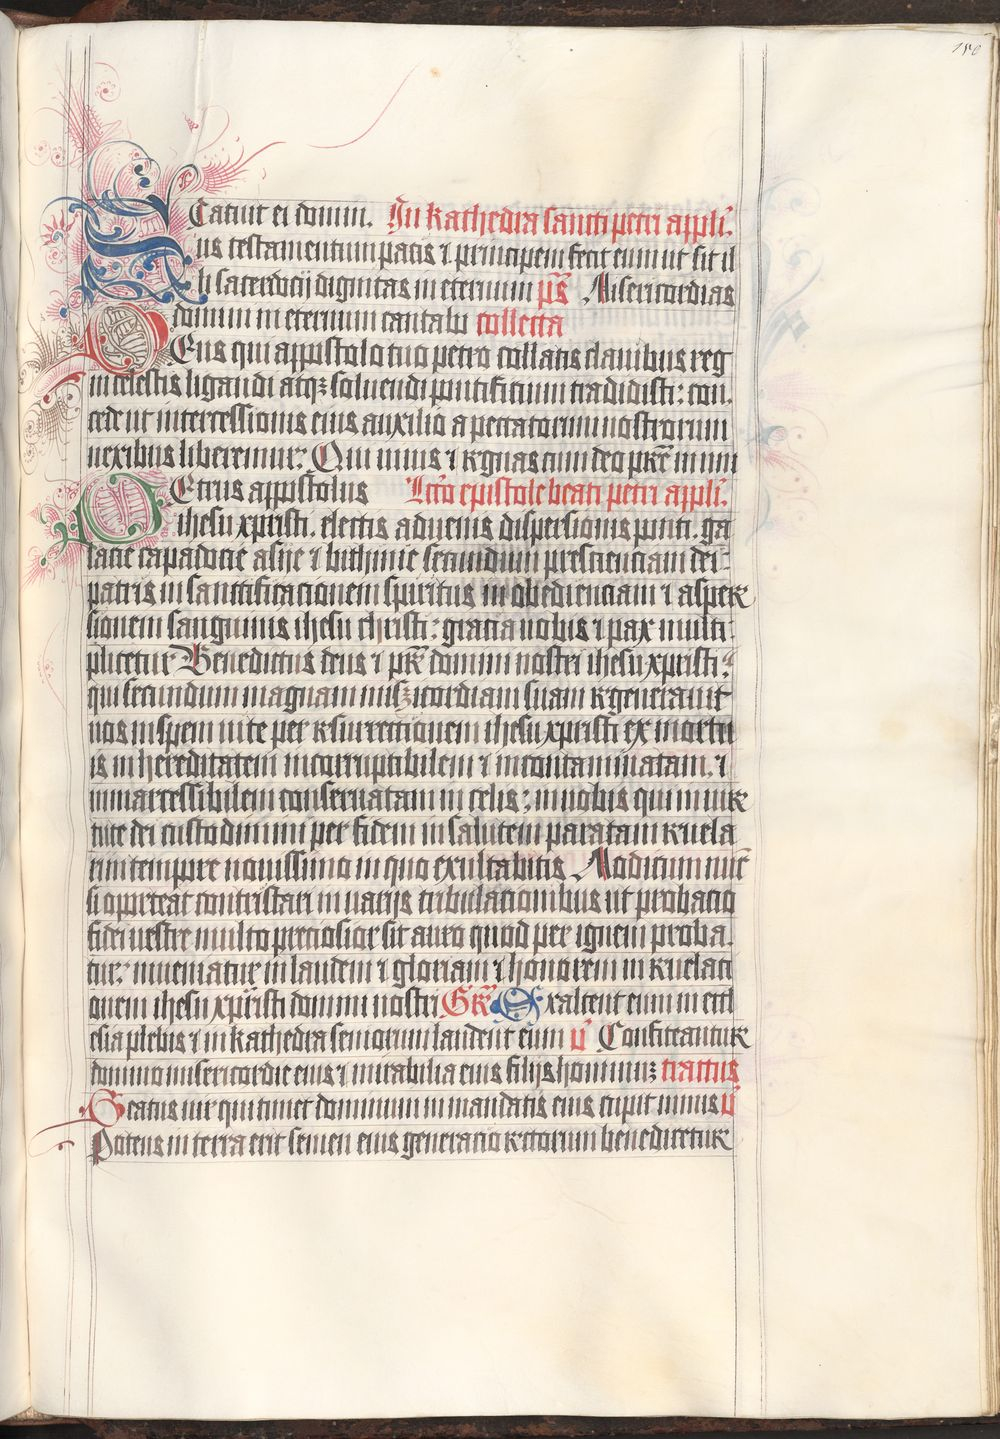 150
STatuit ei domin. In kathedra sancti petri appli.
us testamentum pacis ⁊ principem fecit eum ut sit il
li sacerdocij dignitas in eternum p̄s Misericordias
domini in eternum cantabo collecta
DEus qui appostolo tuo petro collatis clauibus reg
ni celestis ligandi atq₃ soluendi pontificium tradidisti: con
cede ut intercessionis eius auxilio a peccatorum nostrorum
nexibus liberemur: Qui uiuis ⁊ regnas cum deo patre in uni
PEtrus appostolus Lcō epistole beati petri appli.
ihesu xpristi. electis aduenis dispersionis ponti. ga
lacie capadocie asije ⁊ bithinie secundum prescienciam dei
patris in sanctificacionem spiritus in obedienciam ⁊ asper
sionem sanguinis ihesu christi: gracia uobis ⁊ pax multi
plicetur Benedictus deus ⁊ pr̄ domini nostri ihesu xpristi:
qui secundum magnam mis₃icordiam suam regenerauit
nos in spem uite per resurrectionem ihesu xpristi ex mortu
is in hereditatem incorruptibilem ⁊ incontaminatam. ⁊
inmarcessibilem conseruatam in celis: in uobis qui in uir
tute dei custodimini per fidem in salutem paratam reuela
rim tempore nouissimo in quo exultabitis Modicum nūc
si oporteat contristari in uarijs tribulacionibus ut probacio
fidei uestre multo preciosior sit auro quod per ignem proba
tur: inueniatur in laudem ⁊ gloriam ⁊ honorem in reuelaci
onem ihesu xpristi domini nostri Gr̄ Exaltent eum in eccl
esia plebis ⁊ in kathedra seniorum laudent eum v̄ Confiteantur
domino misericordie eius ⁊ mirabilia eius filijs hominu₃ tractus
Beatus uir qui timet dominum in mandatis eius cupit nimis v̄
Potens in terra erit semen eius generacio rectorum benedicetur